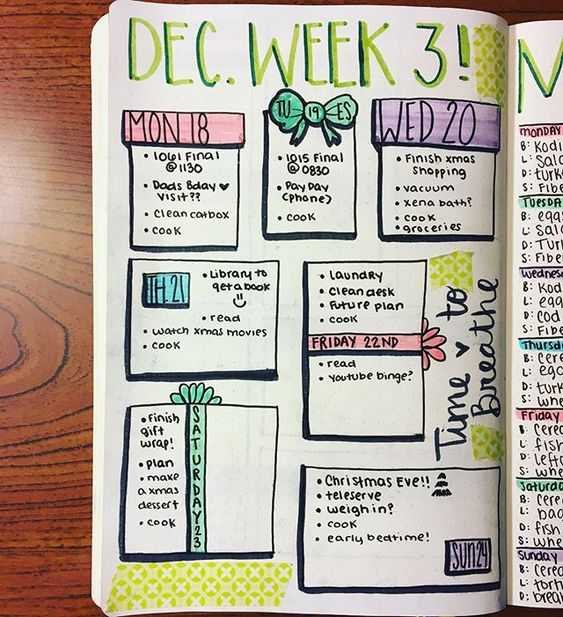 DEC. WEEK 3!
MON 18
• 1061 Final
@ 1130
• Dads Bday ♥
visit??
• clean catbox
• cook
TU 19 ES
• 1015 Final
@ 0830
• Pay Day
(phone)
• cook
WED 20
• Finish xmas
shopping
• vacuum
• xena bath?
• cook
• groceries
TH. 21
• Library to
get a book
• read
• watch xmas movies
• cook
• Laundry
• Clean desk
• Future plan
• cook
FRIDAY 22ND
• read
• Youtube binge?
Time ♥ to
Breathe
SATURDAY 23
• finish
gift
wrap!
• plan
• make
a xmas
dessert
• cook
• Christmas Eve!!
• teleserve
• weigh in?
• cook
• early bedtime!
SUN 24
M
MONDAY
B: Kodi
L: Sala
D: turk
S: Fibe
TUESDAY
B: egg
L: Sala
D: Turk
S: Fibe
Wednesda
B: Kod
L: egg
D: cod
S: Fibe
Thursda
B: Cere
L: egg
D: turk
S: whe
Friday
B: cerea
L: fish
D: left
S: whe
Saturda
B: Cere
L: bag
D: fish
S: whe
Sunday
B: Cerea
L: tort
D: break